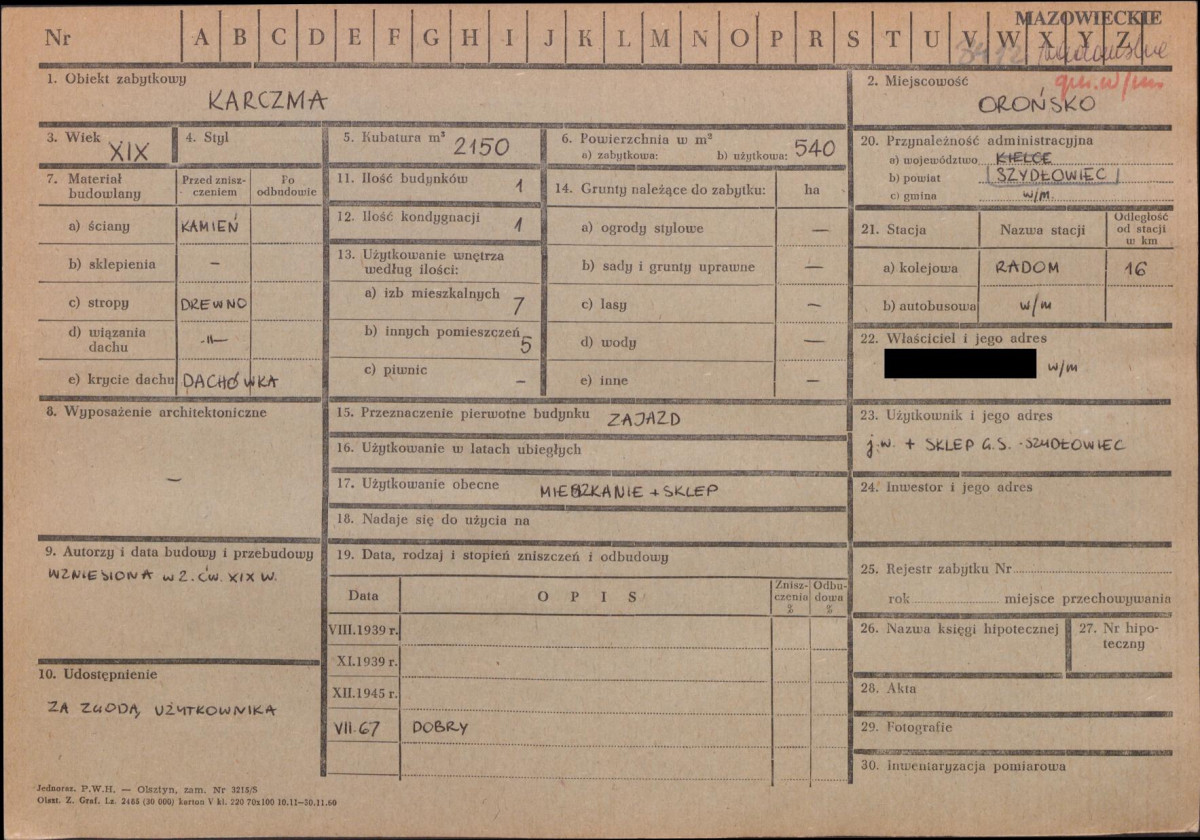 MAZOWIECKIE
Nr A B C D E F G H I J K L M N O P R S T U V W X Y Z
1. Obiekt zabytkowy
KARCZMA
2. Miejscowość
OROŃSKO
3. Wiek XIX
4. Styl
5. Kubatura m³ 2150
6. Powierzchnia w m²
a) zabytkowa: b) użytkowa: 540
7. Materiał budowlany
Przed zniszczeniem
Po odbudowie
a) ściany KAMIEŃ
b) sklepienia –
c) stropy DREWNO
d) wiązania dachu -"-
e) krycie dachu DACHÓWKA
8. Wyposażenie architektoniczne
–
9. Autorzy i data budowy i przebudowy
WZNIESIONA W 2. ĆW. XIX W.
10. Udostępnienie
ZA ZGODĄ UŻYTKOWNIKA
11. Ilość budynków 1
12. Ilość kondygnacji 1
13. Użytkowanie wnętrza
według ilości:
a) izb mieszkalnych 7
b) innych pomieszczeń 5
c) piwnic –
14. Grunty należące do zabytku: ha
a) ogrody stylowe –
b) sady i grunty uprawne –
c) lasy –
d) wody –
e) inne –
15. Przeznaczenie pierwotne budynku ZAJAZD
16. Użytkowanie w latach ubiegłych
17. Użytkowanie obecne MIESZKANIE + SKLEP
18. Nadaje się do użycia na
19. Data, rodzaj i stopień zniszczeń i odbudowy
Data OPIS Zniszczenia % Odbudowa %
VIII.1939 r.
XI.1939 r.
XII.1945 r.
VII.67 DOBRY
20. Przynależność administracyjna
a) województwo KIELCE
b) powiat SZYDŁOWIEC
c) gmina w/m.
21. Stacja Nazwa stacji Odległość od stacji w km
a) kolejowa RADOM 16
b) autobusowa w/m
22. Właściciel i jego adres
w/m
23. Użytkownik i jego adres
j.w. + SKLEP G.S. - SZYDŁOWIEC
24. Inwestor i jego adres
25. Rejestr zabytku Nr
rok miejsce przechowywania
26. Nazwa księgi hipotecznej
27. Nr hipoteczny
28. Akta
29. Fotografie
30. Inwentaryzacja pomiarowa
Jednoraz. P.W.H. — Olsztyn, zam. Nr 3215/S
Olszt. Z. Graf. Lz. 2466 (30 000) karton V kl. 220 70x100 10.11—30.11.60